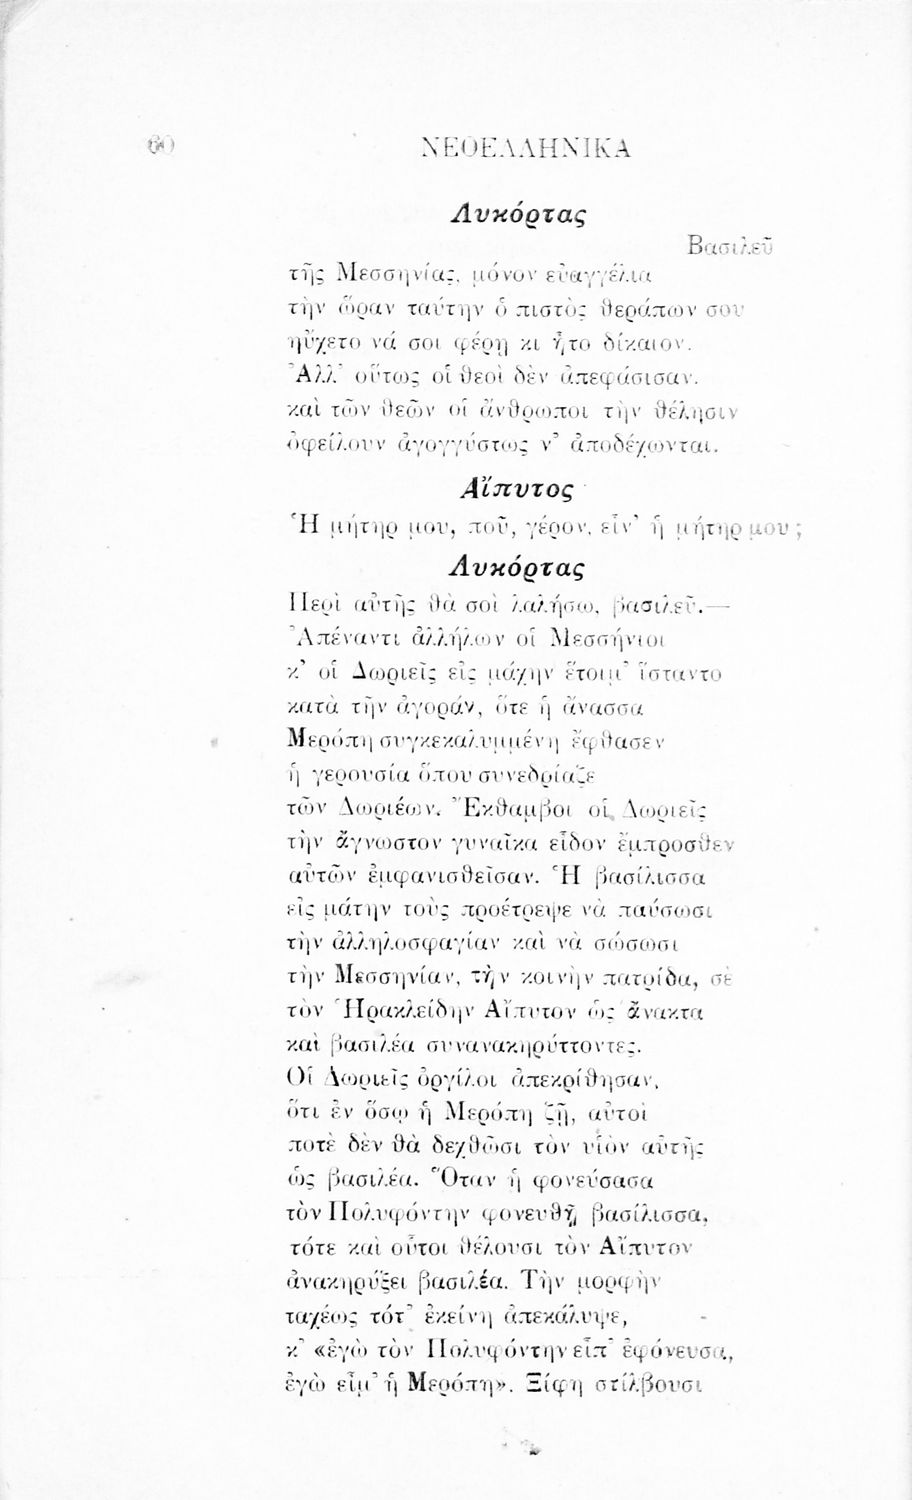 60 ΝΕΟΕΛΛΗΝΙΚΑ
Λυκόρτας
Βασιλεῦ
τῆς Μεσσηνίας, μόνον εὐαγγέλια
τὴν ὥραν ταύτην ὁ πιστὸς θεράπων σου
ηὔχετο νά σοι φέρῃ κι ἦτο δίκαιον.
Ἀλλ' οὕτως οἱ θεοὶ δὲν ἀπεφάσισαν.
καὶ τῶν θεῶν οἱ ἄνθρωποι τὴν θέλησιν
ὀφείλουν ἀγογγύστως ν' ἀποδέχωνται.
Αἴπυτος
Ἡ μήτηρ μου, ποῦ, γέρον, εἶν' ἡ μήτηρ μου ;
Λυκόρτας
Περὶ αὐτῆς θὰ σοὶ λαλήσω, βασιλεῦ.—
Ἀπέναντι ἀλλήλων οἱ Μεσσήνιοι
κ' οἱ Δωριεῖς εἰς μάχην ἕτοιμ' ἵσταντο
κατὰ τῆν ἀγοράν, ὅτε ἡ ἄνασσα
Μερόπη συγκεκαλυμμένη ἔφθασεν
ἡ γερουσία ὅπου συνεδρίαζε
τῶν Δωριέων. Ἔκθαμβοι οἱ Δωριεῖς
τὴν ἄγνωστον γυναῖκα εἶδον ἔμπροσθεν
αὐτῶν ἐμφανισθεῖσαν. Ἡ βασίλισσα
εἰς μάτην τοὺς προέτρεψε νὰ παύσωσι
τὴν ἀλληλοσφαγίαν καὶ νὰ σώσωσι
τὴν Μεσσηνίαν, τὴν κοινὴν πατρίδα, σὲ
τὸν Ἡρακλείδην Αἴπυτον ὡς ἄνακτα
καὶ βασιλέα συνανακηρύττοντες.
Οἱ Δωριεῖς ὀργίλοι ἀπεκρίθησαν,
ὅτι ἐν ὅσῳ ἡ Μερόπη ζῇ, αὐτοὶ
ποτὲ δὲν θὰ δεχθῶσι τὸν υἱὸν αὐτῆς
ὡς βασιλέα. Ὅταν ἡ φονεύσασα
τὸν Πολυφόντην φονευθῇ βασίλισσα,
τότε καὶ οὗτοι θέλουσι τὸν Αἴπυτον
ἀνακηρύξει βασιλέα. Τὴν μορφὴν
ταχέως τότ' ἐκείνη ἀπεκάλυψε,
κ' «ἐγὼ τὸν Πολυφόντην εἶπ' ἐφόνευσα,
ἐγὼ εἶμ' ἡ Μερόπη». Ξίφη στίλβουσι